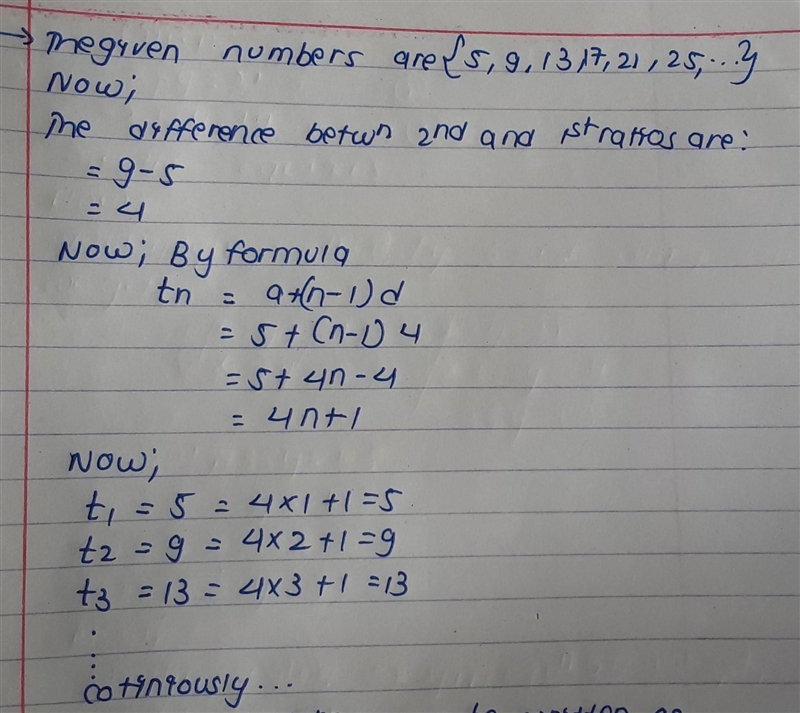 → The given numbers are {5, 9, 13, 17, 21, 25, ...}
Now;
The difference betwn 2nd and 1st ratios are:
= 9-5
= 4
Now; By formula
tn = a+(n-1)d
= 5+(n-1)4
= 5+4n-4
= 4n+1
Now;
t1 = 5 = 4×1+1=5
t2 = 9 = 4×2+1=9
t3 = 13 = 4×3+1=13
.
:
:
cotiniously...